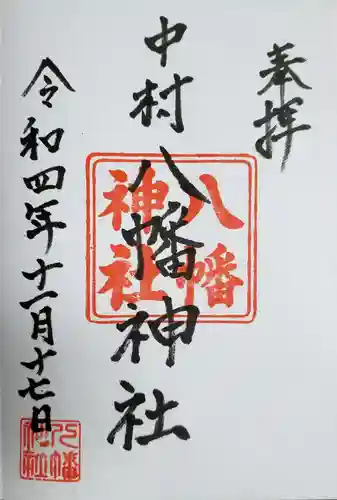 奉拝
中村八幡神社
八幡
神社
令和四年十一月十七日
八幡
神社